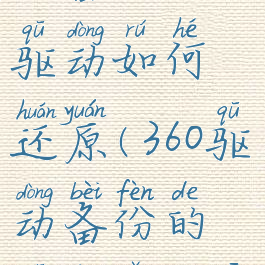 qū dòng rú hé
驱动如何
huán yuán qū
还原(360驱
dòng bèi fèn de
动备份的